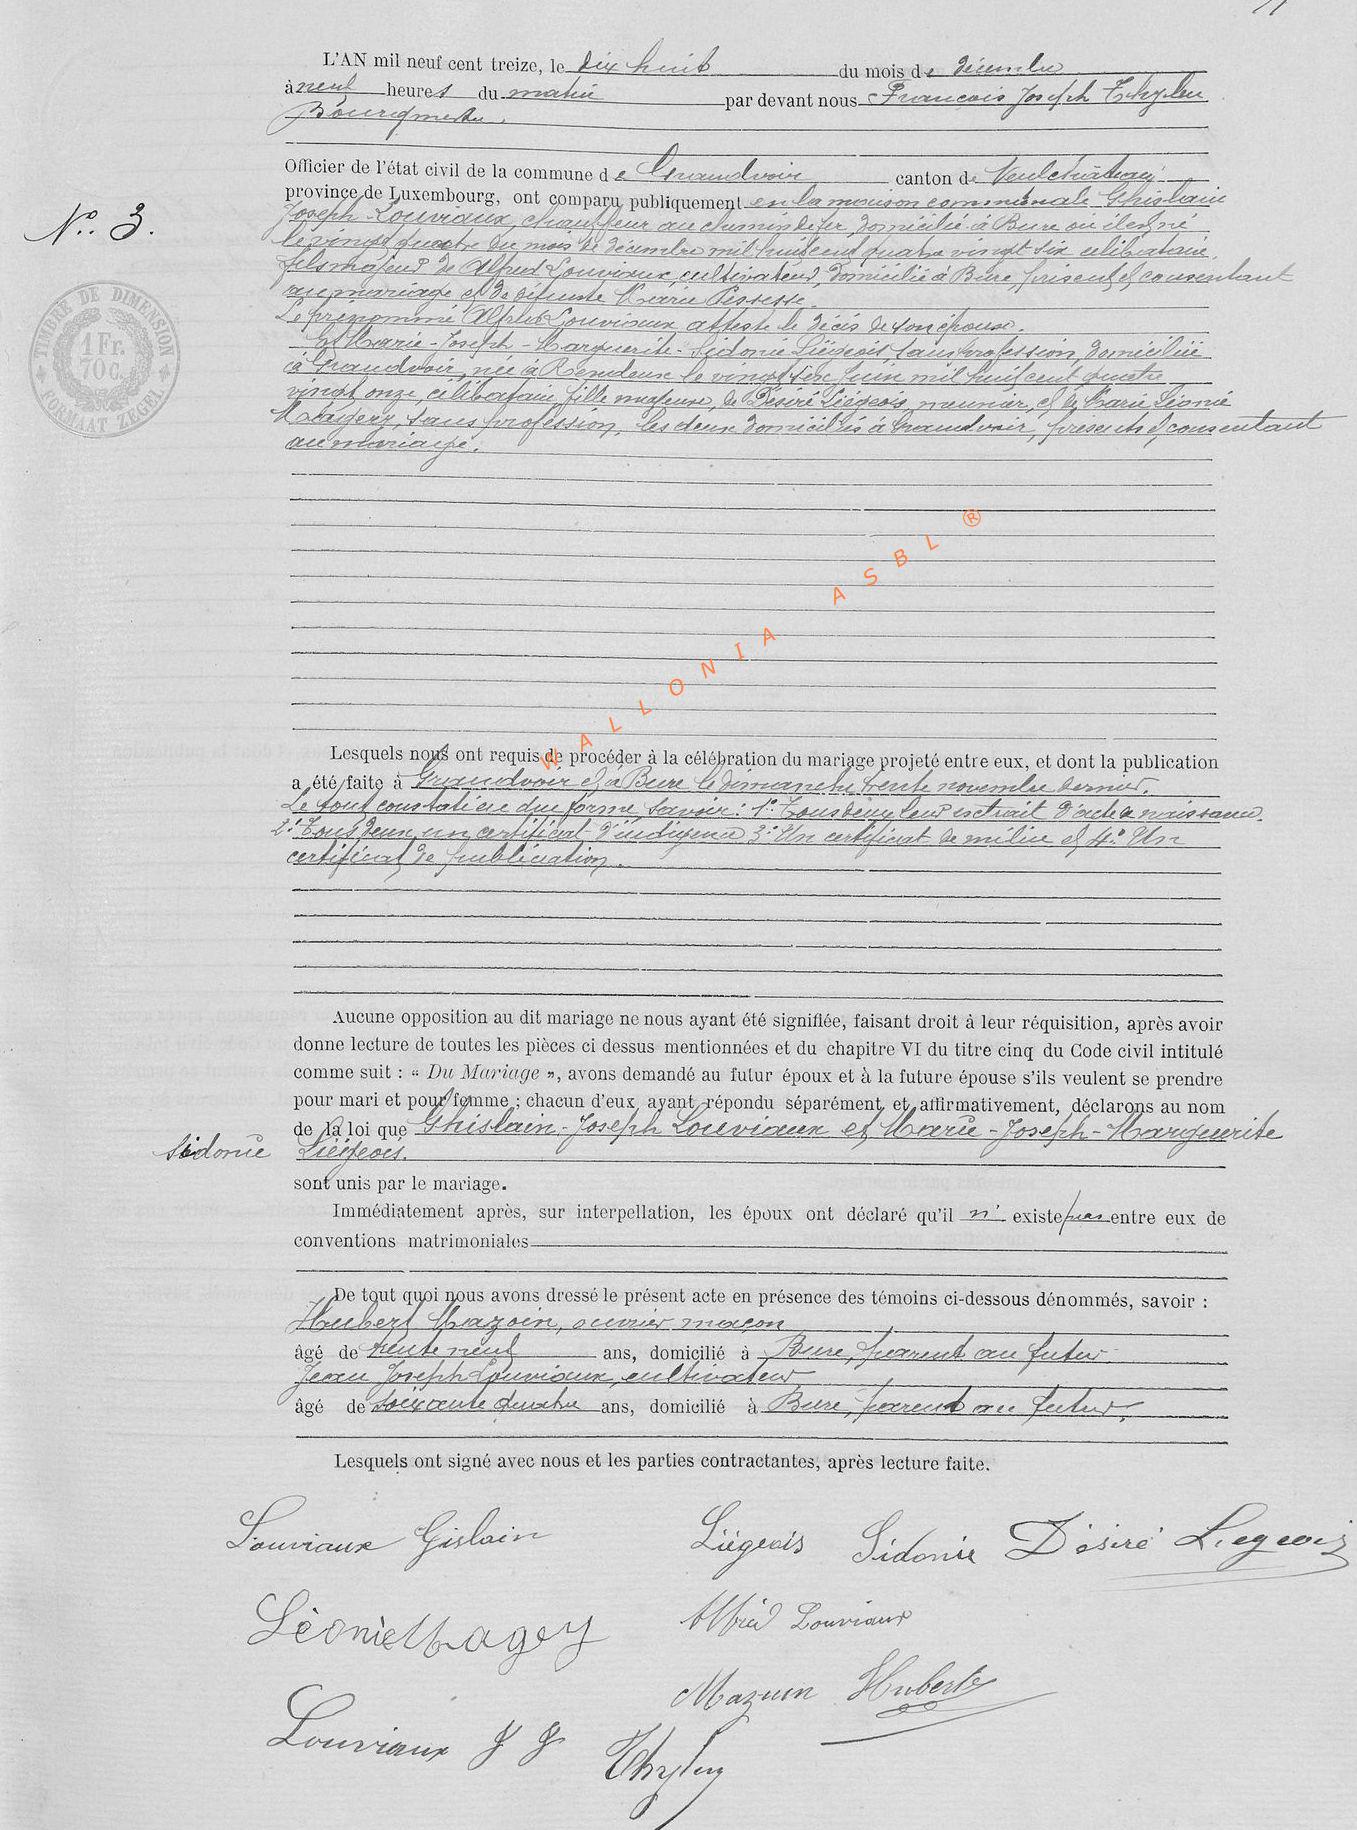 L'AN mil neuf cent treize, le dix huit du mois de décembre
à neuf heures du matin par devant nous François Joseph Thylen
Bourgmestre.
Officier de l'état civil de la commune de Grandvoir canton de Neufchâteau
province de Luxembourg, ont comparu publiquement en la maison communale Ghislain
N°. 3.
Joseph Louviaux, chauffeur au chemin de fer, domicilié à Bure où il est né
le vingt quatre du mois de décembre mil huit cent quatre vingt six célibataire,
fils majeur de Alfred Louviaux, cultivateur, domicilié à Bure présent et consentant
au mariage et de défunte Marie
Le prénommé Alfred Louviaux atteste le décès de son épouse.
Et Marie-Joseph-Marguerite-Sidonie Liégeois, sans profession, domiciliée
à Grandvoir, née à Rendeux le vingt six Juin mil huit cent quatre
vingt onze, célibataire fille majeure, de Désiré Liégeois, meunier, et de Marie Léonie
Magery, sans profession, les deux domiciliés à Grandvoir, présents et consentant
au mariage.
TIMBRE DE DIMENSION
1 Fr.
70 C.
FORMAAT ZEGEL
WALLONIA ASBL ®
Lesquels nous ont requis de procéder à la célébration du mariage projeté entre eux, et dont la publication
a été faite à Grandvoir et à Bure le dimanche trente novembre dernier.
Le tout constaté en due forme, savoir: 1° Tous deux leur extrait d'acte de naissance.
2° Tous deux un certificat d'indigence 3° Un certificat de milice et 4° Un
certificat de publication.
Aucune opposition au dit mariage ne nous ayant été signifiée, faisant droit à leur réquisition, après avoir
donne lecture de toutes les pièces ci dessus mentionnées et du chapitre VI du titre cinq du Code civil intitulé
comme suit : « Du Mariage », avons demandé au futur époux et à la future épouse s'ils veulent se prendre
pour mari et pour femme ; chacun d'eux ayant répondu séparément et affirmativement, déclarons au nom
de la loi que Ghislain-Joseph Louviaux et Marie-Joseph-Marguerite
Sidonie Liégeois.
sont unis par le mariage.
Immédiatement après, sur interpellation, les époux ont déclaré qu'il n' existe pas entre eux de
conventions matrimoniales
De tout quoi nous avons dressé le présent acte en présence des témoins ci-dessous dénommés, savoir :
Hubert Mazoin, ouvrier maçon
âgé de trente neuf ans, domicilié à Bure, parent au futur
Jean Joseph Louviaux, cultivateur
âgé de soixante quatre ans, domicilié à Bure, parent au futur.
Lesquels ont signé avec nous et les parties contractantes, après lecture faite.
Louviaux Gislain Liégeois Sidonie Désiré Liegeois
Léonie Magery Alfred Louviaux
Mazuin Hubert
Louviaux J J Thylen